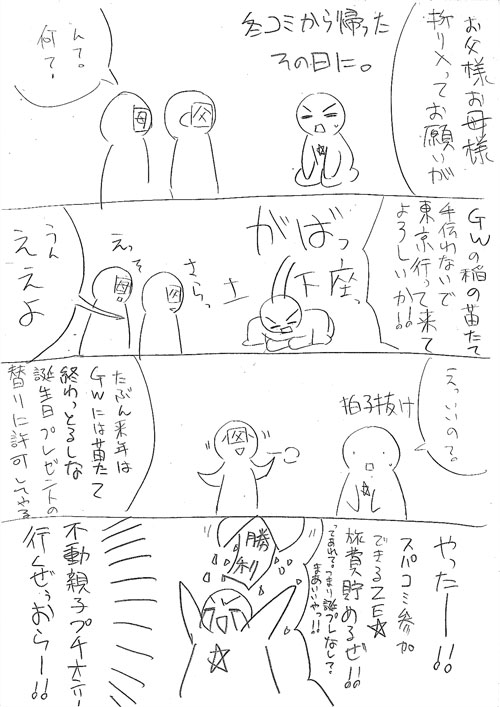 お父様お母様
折り入ってお願いが
冬コミから帰った
その日に。
父
母
んて。
何て！
GWの稲の苗たて
手伝わないで
東京行って来て
よろしいか!!
がばっ
土下座。
さらっ
父
えっそ
母
うん
ええよ
えっいいのて。
拍子抜け
父
たぶん来年は
GWには苗たて
終わっとるしな
誕生日プレゼントの
替りに許可してやる
やったー!!
スパコミ参加
できるZE☆
旅費貯めるぜ!!
ってあれ？つまり誕プレなしで？
まあいいやっ!!
勝利
不動親子プチオンリー
行くぜぇおらー!!